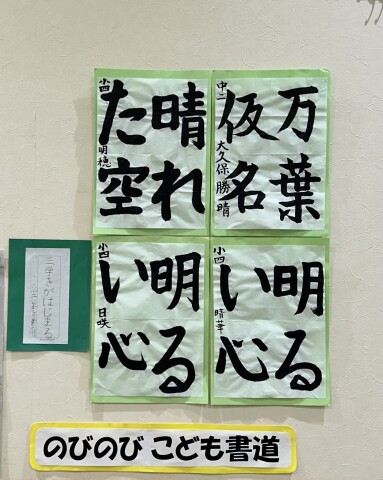 万葉
仮名
中二 大久保勝晴
晴れ
た空
小四 明穂
明る
い心
小四 晴華
明る
い心
小四 日咲
三学きがはじまる
のびのび こども書道